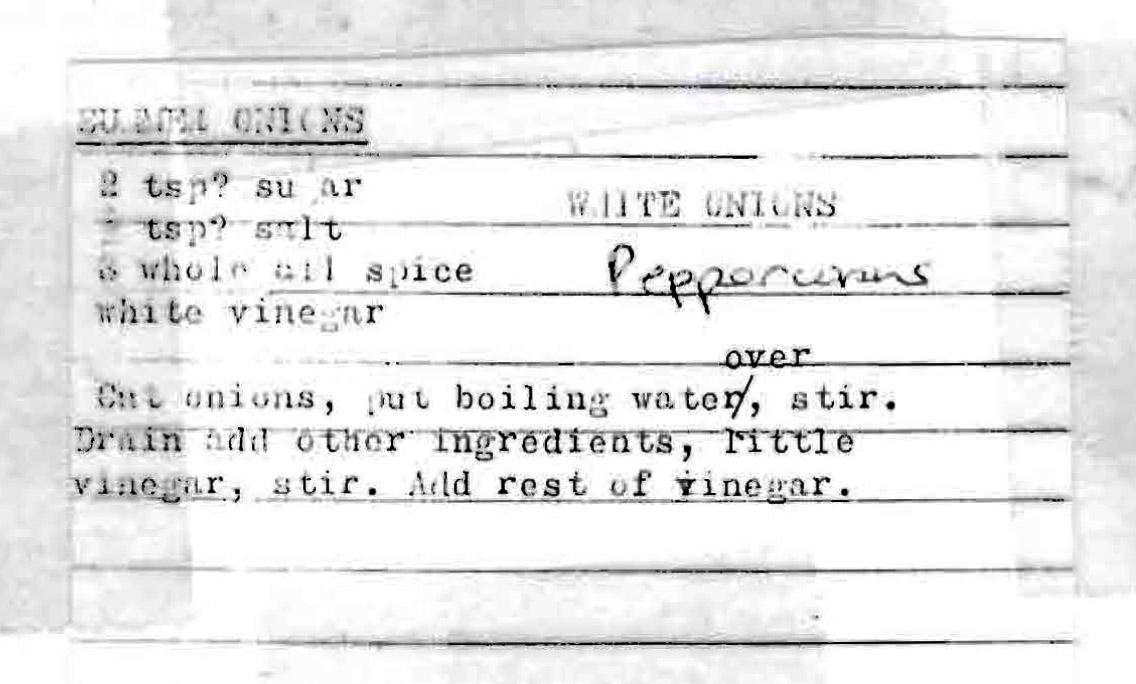 ONIONS
2 tsp? su ar
tsp? salt
WHITE ONIONS
whole all spice
Peppercorns
white vinegar
over
Cut onions, put boiling water/, stir.
Drain Add other ingredients, little
vinegar, stir. Add rest of vinegar.